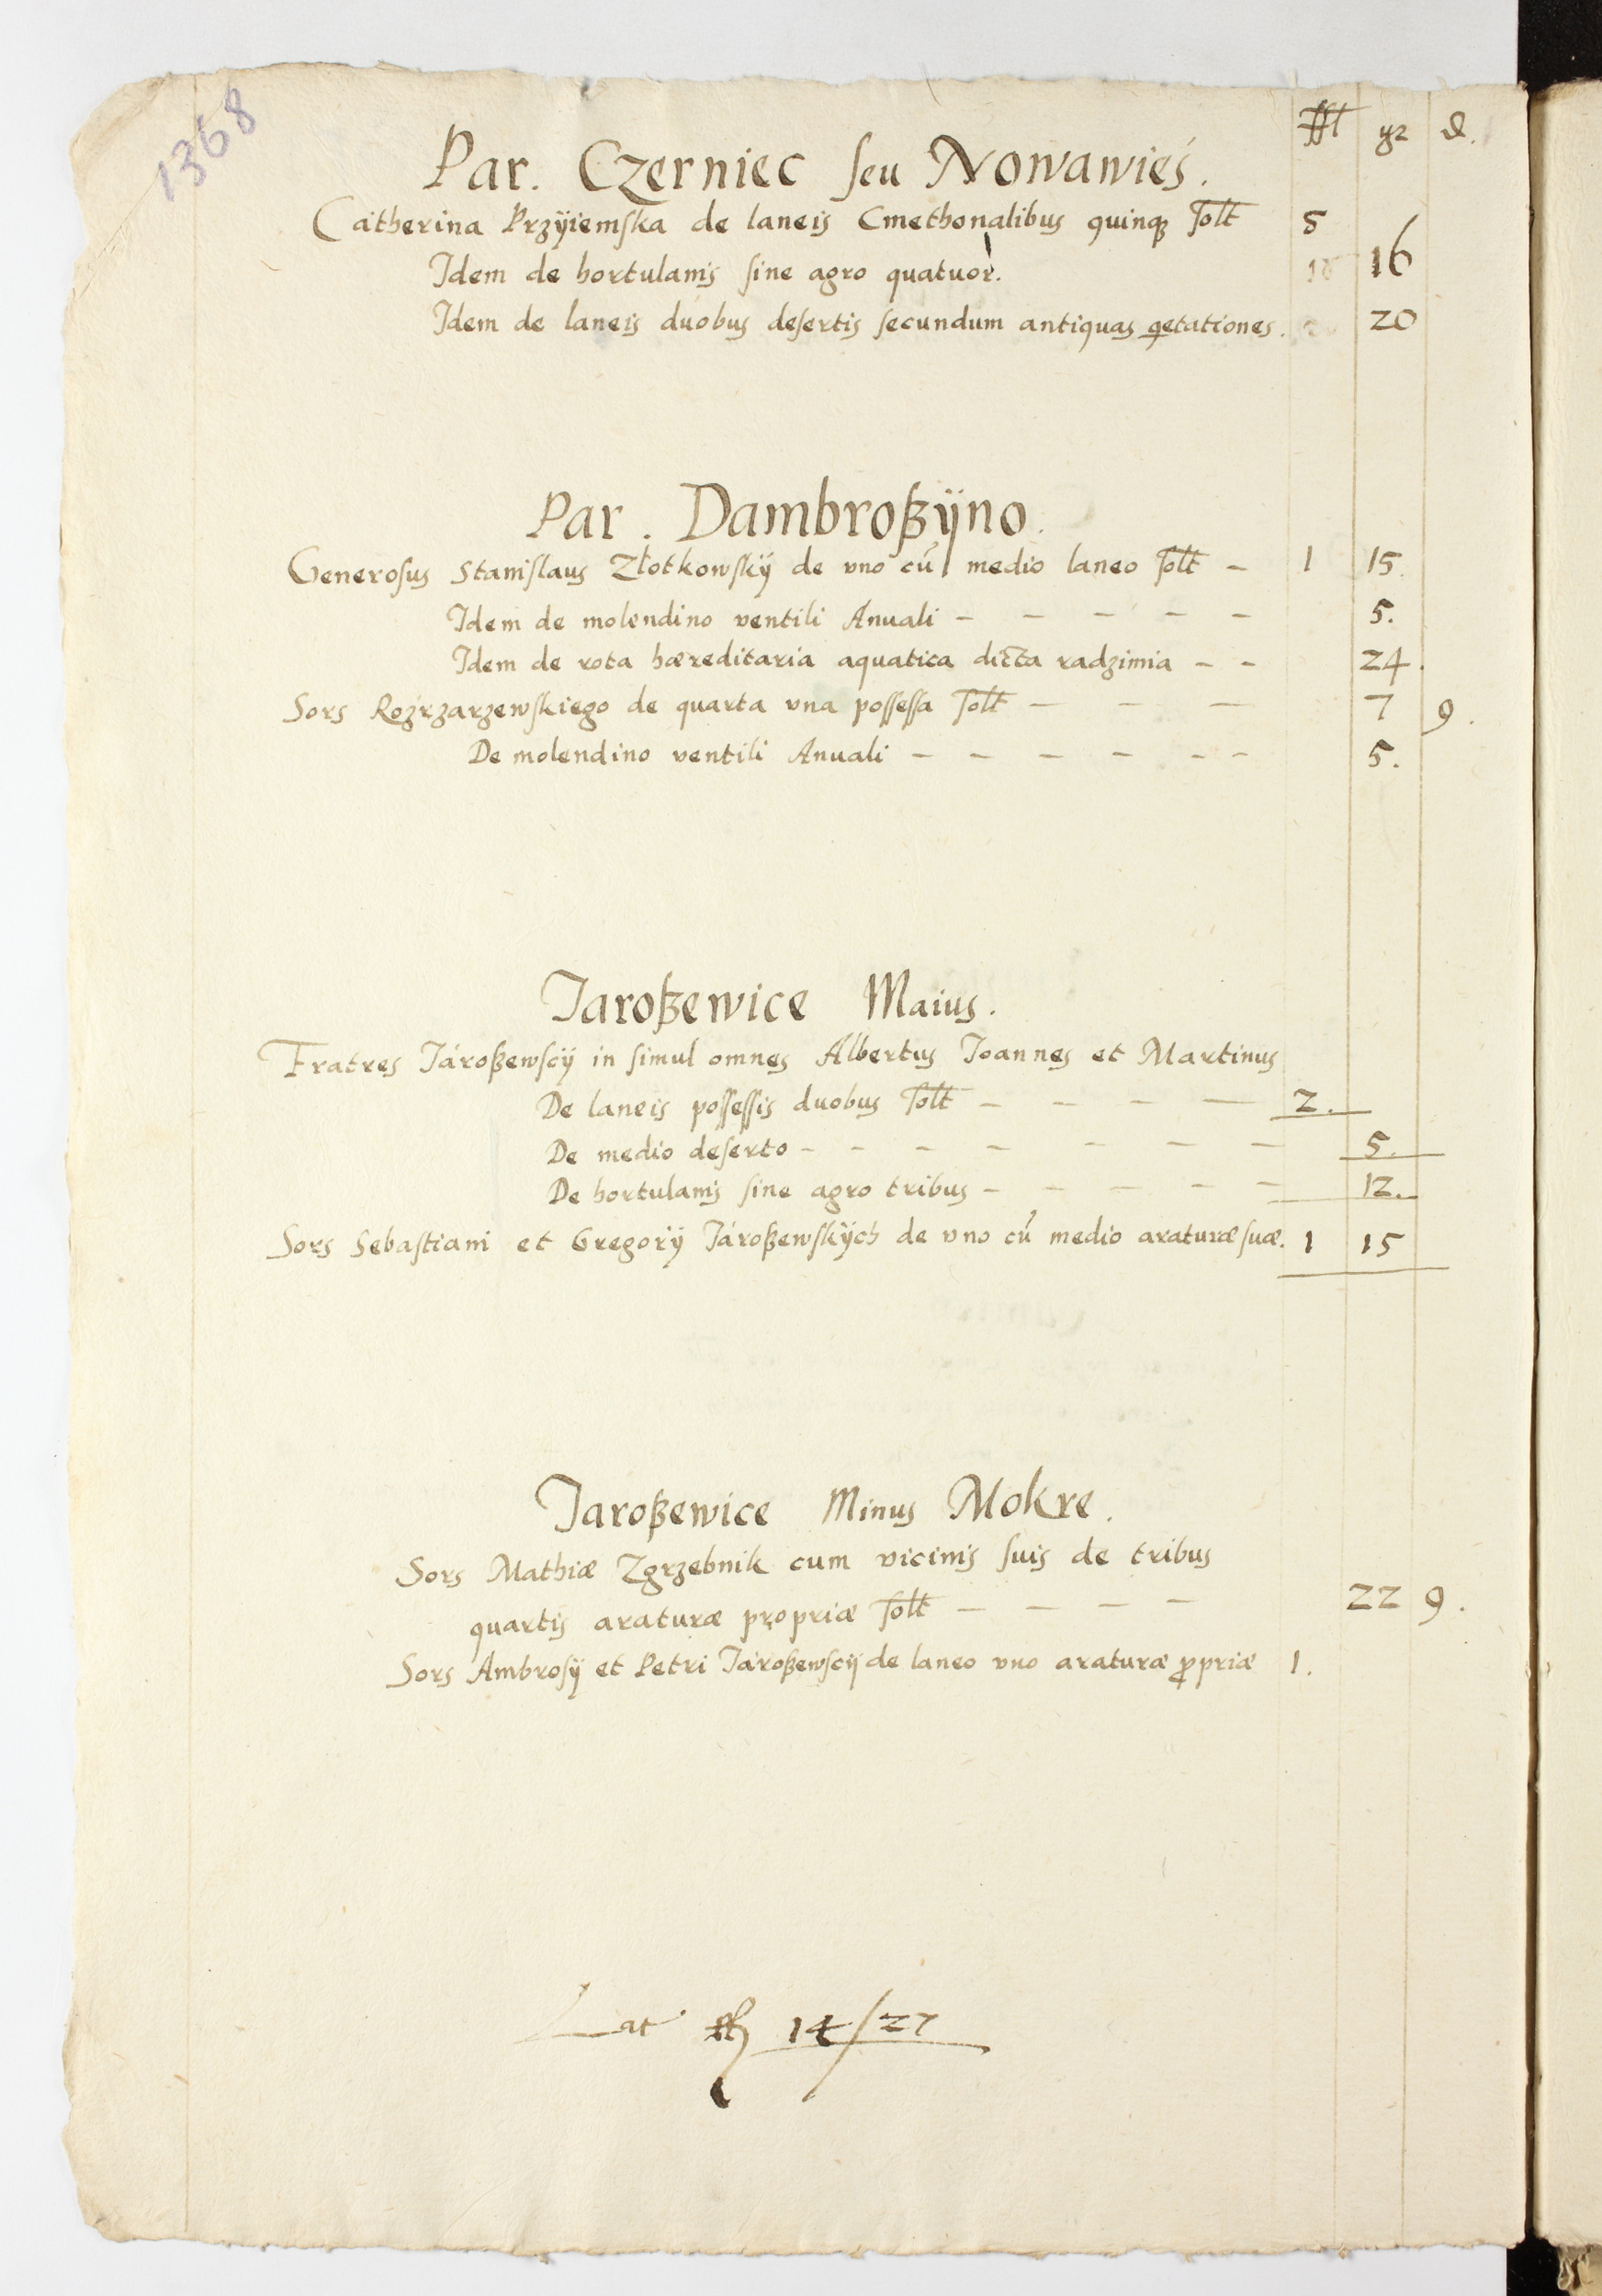 1368
ffl gr d.
Par. Czerniec seu Nowawieś.
Catherina Przÿiemska de laneis Cmethonalibus quinqꝫ solt 5
Idem de hortulanis sine agro quatuor. 16
Idem de laneis duobus desertis secundum antiquas qetationes. 20
Par. Dambroßÿno.
Generosus Stanislaus Złotkowskÿ de vno cū medio laneo solt – 1 15.
Idem de molendino ventili Anuali – – – – – 5.
Idem de rota hæreditaria aquatica dicta radzimia – – 24.
Sors Rozrzarzewskiego de quarta vna possessa solt – – – 7 9.
De molendino ventili Anuali – – – – – – 5.
Iaroßewice Maius.
Fratres Iároßewscÿ in simul omnes Albertus Ioannes et Martinus
De laneis possessis duobus solt – – – – 2.
De medio deserto – – – – – – – 5.
De hortulanis sine agro tribus – – – – – 12.
Sors Sebastiani et Gregorÿ Iároßewskÿch de vno cū medio araturæ suæ. 1 15
Iaroßewice Minus Mokre.
Sors Mathiæ Zgrzebnik cum vicinis suis de tribus
quartis araturæ propriæ solt – – – – 22 9.
Sors Ambrosÿ et Petri Iároßewscÿ de laneo vno araturæ ꝓpriæ 1.
Lat fl 14/27